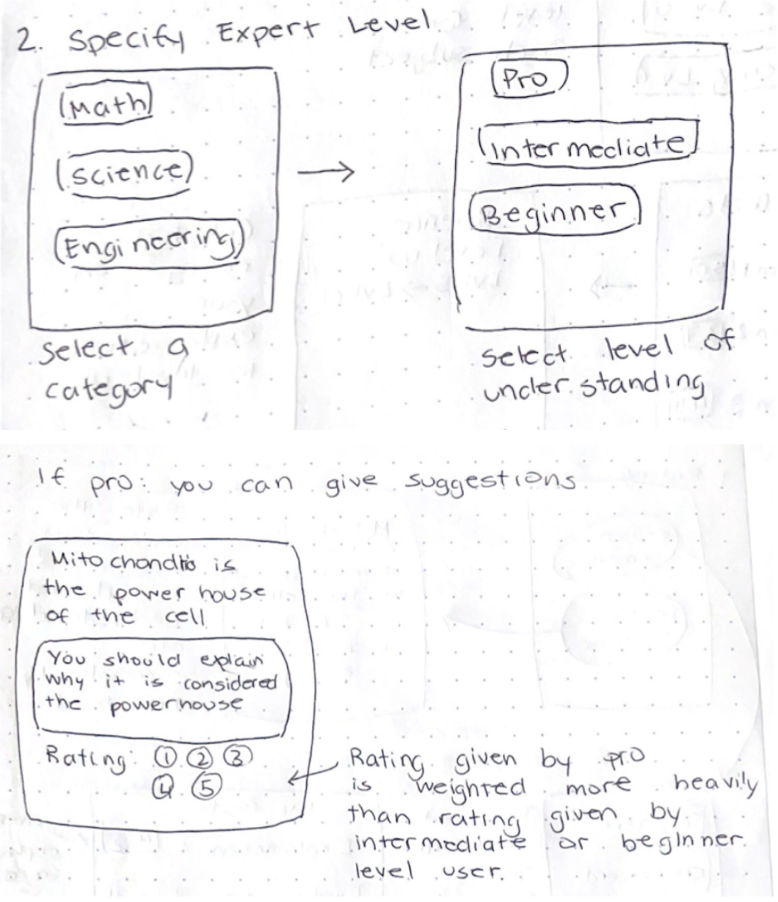 2. Specify Expert Level
Math
Science
Engineering
Select a
category
Pro
Intermediate
Beginner
Select level of
understanding
If pro: you can give suggestions
Mitochondria is
the power house
of the cell
You should explain
why it is considered
the powerhouse
Rating: 1 2 3
4 5
Rating given by pro
is weighted more heavily
than rating given by
intermediate or beginner
level user.